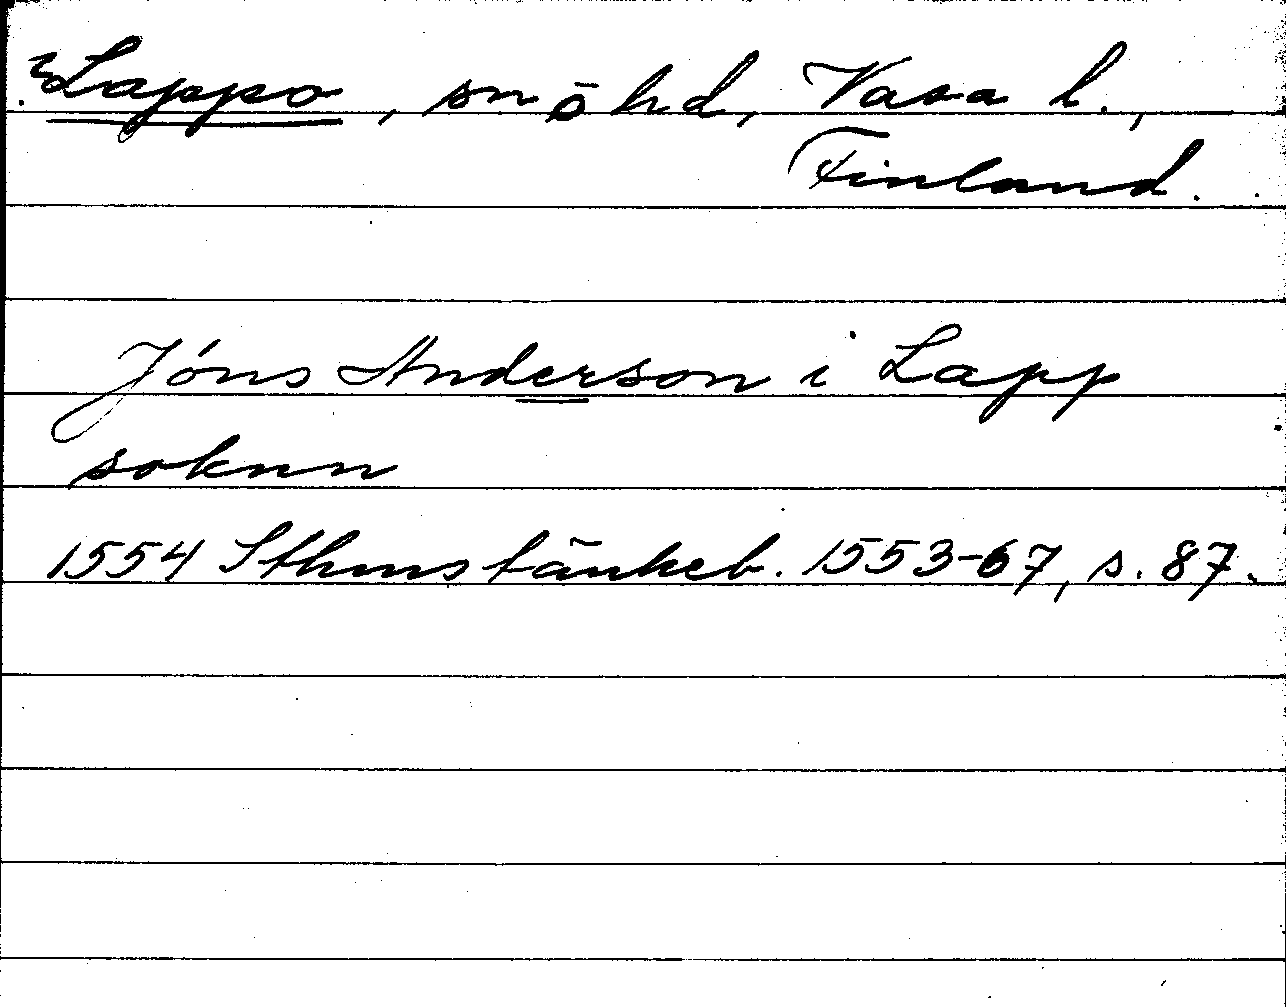 ? Lappo, sn o hd, Vasa l.,
Finland.
Jóns Anderson i Lapp
soknn
1554 Sthms tänkeb. 1553-67, s. 87.